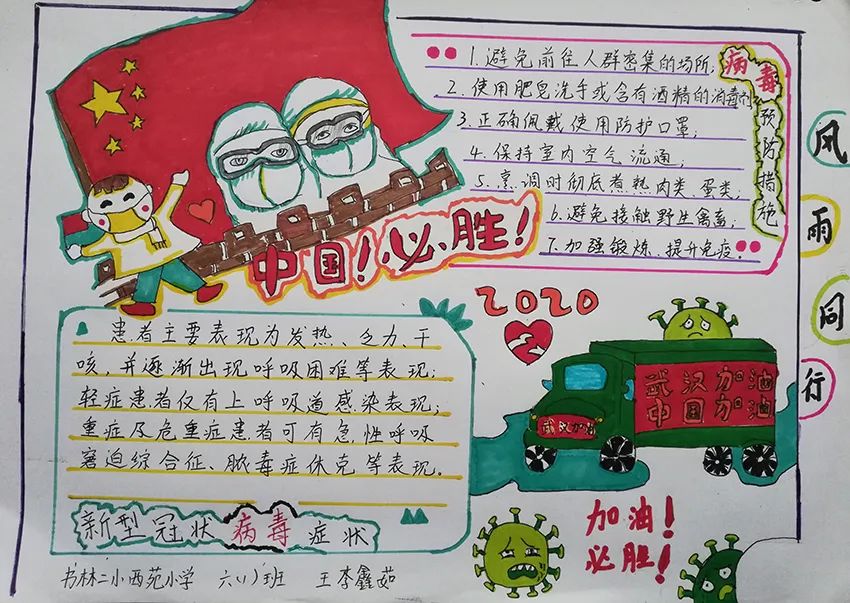 1.避免前往人群密集的场所;
2.使用肥皂洗手或含有酒精的消毒剂
3.正确佩戴使用防护口罩;
4.保持室内空气流通;
5.烹调时彻底煮熟肉类蛋类;
6.避免接触野生禽畜;
7.加强锻炼、提升免疫。
病毒预防措施
风雨同行
中国!必胜!
2020
患者主要表现为发热、乏力、干
咳,并逐渐出现呼吸困难等表现;
轻症患者仅有上呼吸道感染表现;
重症及危重症患者可有急性呼吸
窘迫综合征、脓毒症休克等表现。
新型冠状病毒症状
武汉加油
中国加油
武汉加油
加油!
必胜!
书林二小西苑小学 六(1)班 王李鑫茹